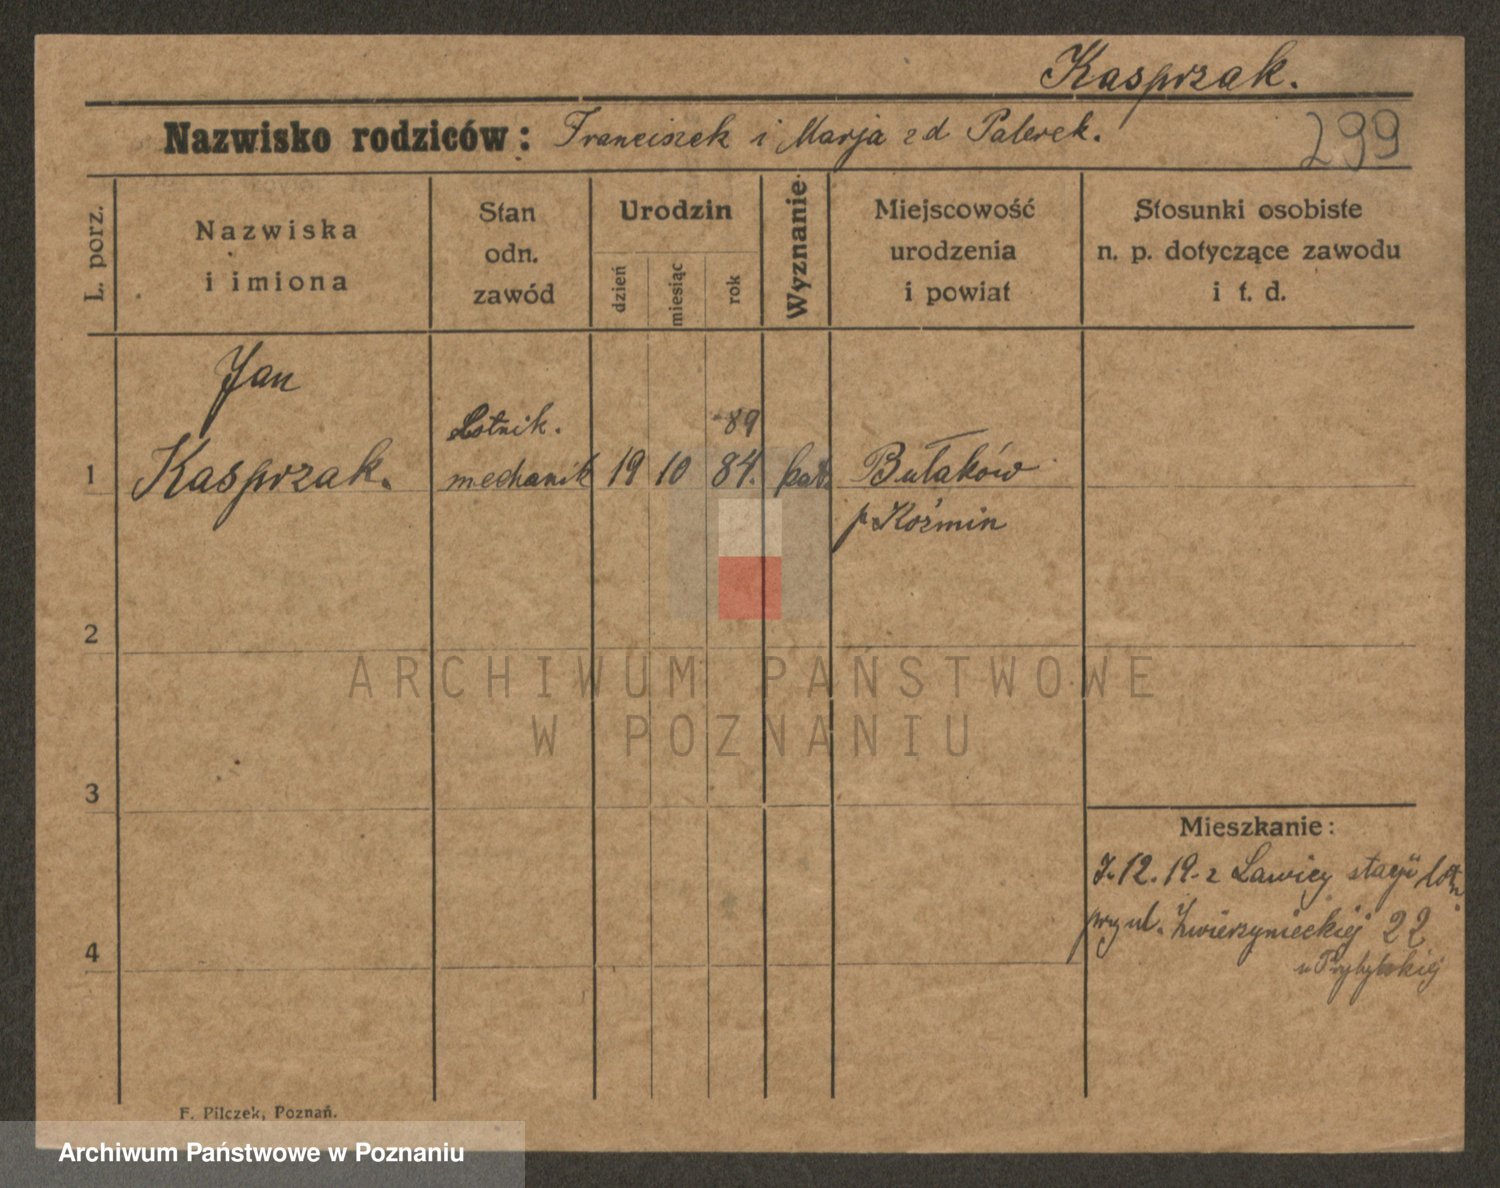 Kasprzak.
Nazwisko rodziców: Franciszek i Marja zd Palerek.
299
L. porz.
Nazwiska
i imiona
Stan
odn.
zawód
Urodzin
dzień
miesiąc
rok
Wyznanie
Miejscowość
urodzenia
i powiat
Stosunki osobiste
n. p. dotyczące zawodu
i t. d.
Jan
Lotnik. 89
1 Kasprzak. mechanik 19 10 84. kat. Bułaków
p. Koźmin
2
ARCHIWUM PAŃSTWOWE
W POZNANIU
3
Mieszkanie:
12. 19. z Lawicy stacji lotn.
przy ul. Zwierzynieckiej 22
u Przybylskiej
4
F. Pilczek, Poznań.
Archiwum Państwowe w Poznaniu